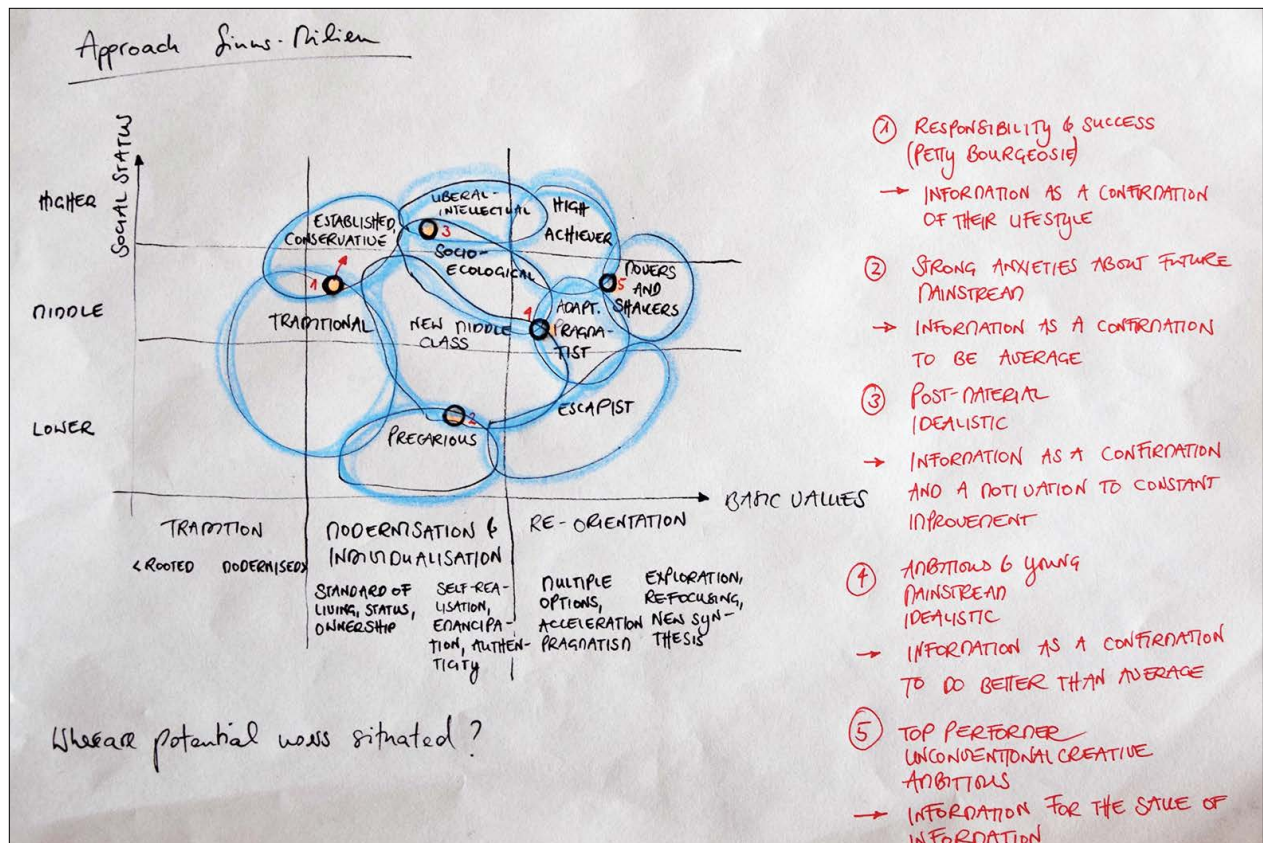 Approach Sinus-Milieu
SOCIAL STATUS
HIGHER
MIDDLE
LOWER
ESTABLISHED,
CONSERVATIVE
LIBERAL-
INTELLECTUAL
HIGH
ACHIEVER
3
SOCIO-
ECOLOGICAL
MOVERS
AND
SHAKERS
5
1
TRADITIONAL
NEW MIDDLE
CLASS
4
ADAPT.
PRAGMA-
TIST
ESCAPIST
2
PREGARIOUS
BASIC VALUES
TRADITION
<ROOTED MODERNISED>
MODERNISATION &
INDIVIDUALISATION
STANDARD OF
LIVING, STATUS,
OWNERSHIP
SELF-REA-
LISATION,
EMANCIPA-
TION, AUTHEN-
TICITY
RE-ORIENTATION
MULTIPLE
OPTIONS,
ACCELERATION
PRAGMATISM
EXPLORATION,
REFOCUSING,
NEW SYN-
THESIS
Where are potential users situated?
1 RESPONSIBILITY & SUCCESS
(PETTY BOURGEOSIE)
→ INFORMATION AS A CONFIRMATION
OF THEIR LIFESTYLE
2 STRONG ANXIETIES ABOUT FUTURE
MAINSTREAM
→ INFORMATION AS A CONFIRMATION
TO BE AVERAGE
3 POST-MATERIAL
IDEALISTIC
→ INFORMATION AS A CONFIRMATION
AND A MOTIVATION TO CONSTANT
IMPROVEMENT
4 AMBITIOUS & YOUNG
MAINSTREAM
IDEALISTIC
→ INFORMATION AS A CONFIRMATION
TO DO BETTER THAN AVERAGE
5 TOP PERFORMER
UNCONVENTIONAL CREATIVE
AMBITIOUS
→ INFORMATION FOR THE SAKE OF
INFORMATION